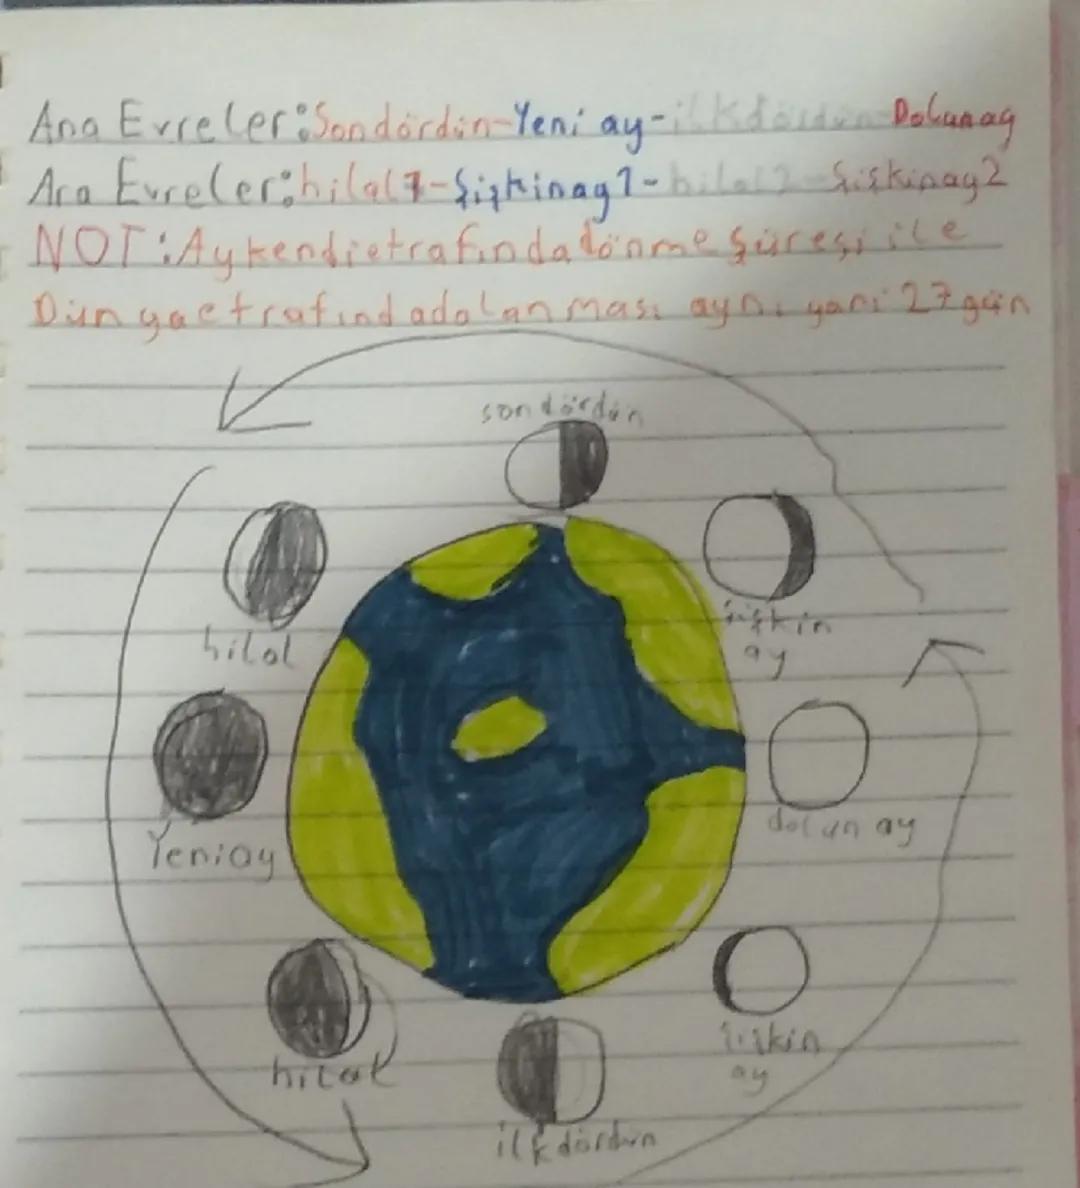 Ana Evreler:Sondördün-Yeni ay-ilkdördün-Dolunay
Ara Evreler:hilal1-Şişkinay1-hilal2-Şişkinay2
NOT:Ay kendi etrafında dönme süresi ile
Dünya etrafında dolanması aynı yani 27 gün
sondördün
şişkin
ay
hilal
dolun ay
Yeniay
şişkin
ay
hilal
ilkdördün